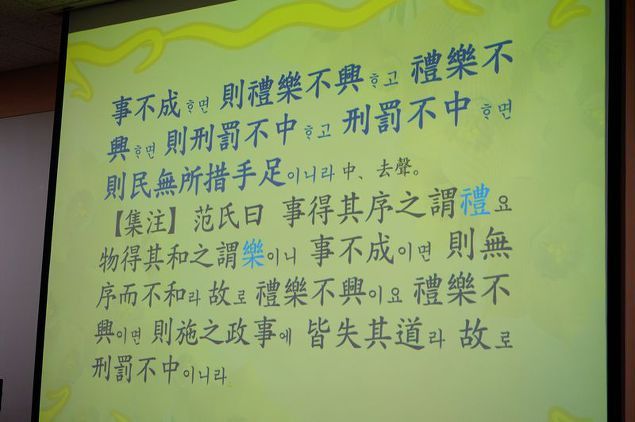 事不成ᄒᆞ면 則禮樂不興ᄒᆞ고 禮樂不
興ᄒᆞ면 則刑罰不中ᄒᆞ고 刑罰不中ᄒᆞ면
則民無所措手足이니라 中、去聲。
【集注】范氏曰 事得其序之謂禮요
物得其和之謂樂이니 事不成이면 則無
序而不和라 故로 禮樂不興이요 禮樂不
興이면 則施之政事에 皆失其道라 故로
刑罰不中이니라